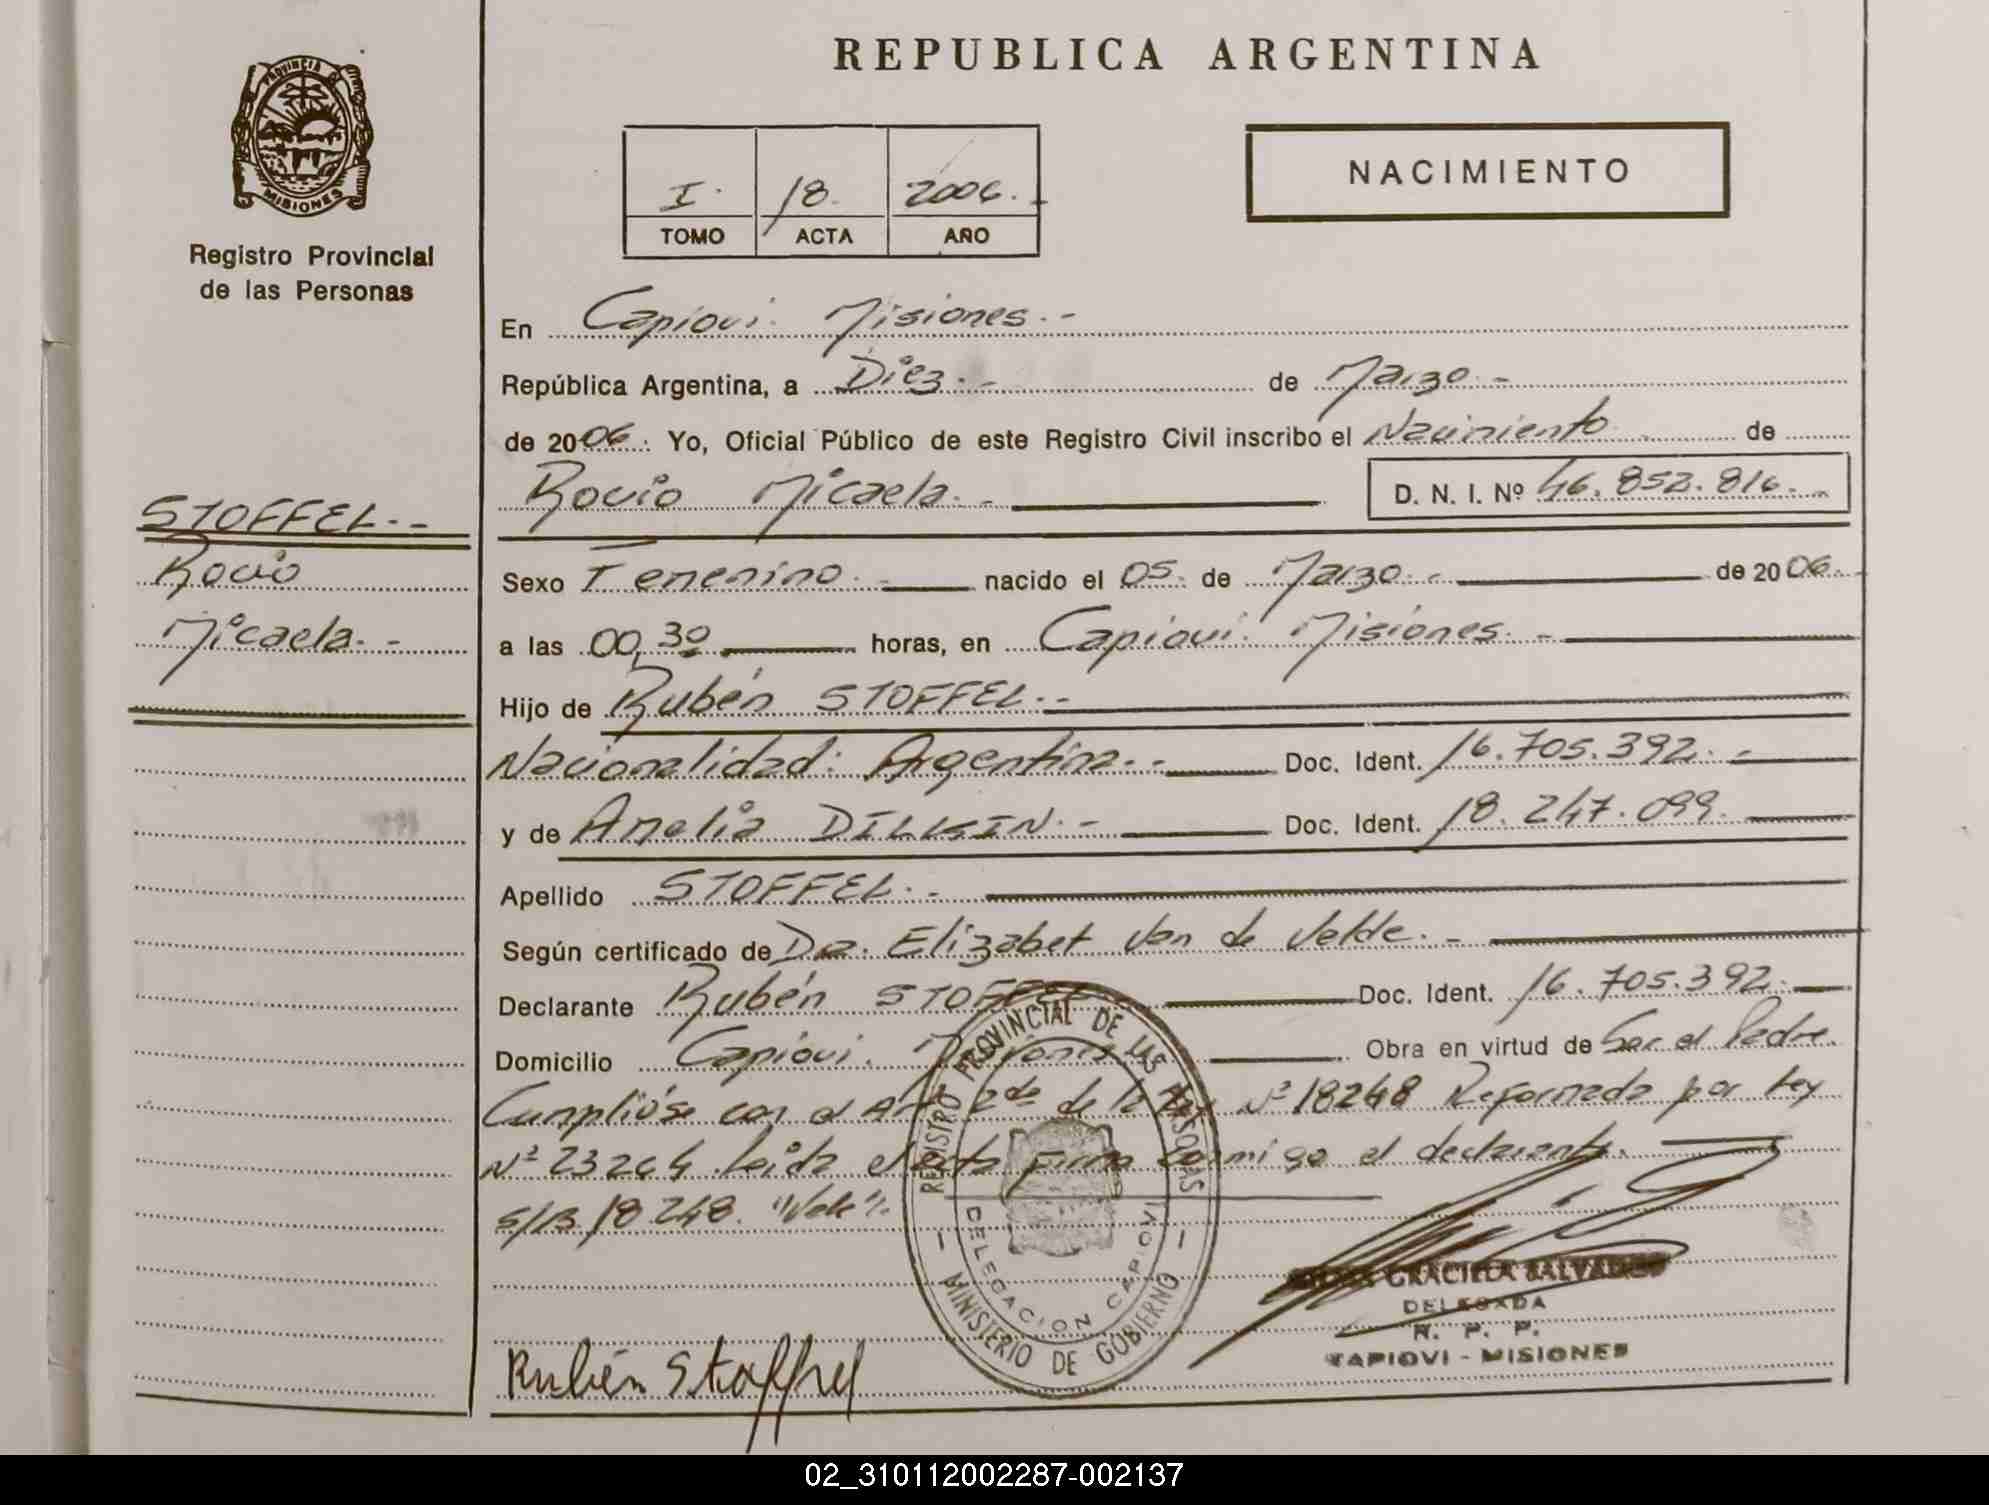 REPUBLICA ARGENTINA
PROVINCIA DE
MISIONES
Registro Provincial
de las Personas
I. 18. 2006.-
TOMO ACTA AÑO
NACIMIENTO
En Capioví. Misiones.-
República Argentina, a Diez.- de Marzo.-
de 2006. Yo, Oficial Público de este Registro Civil inscribo el Nacimiento de
Rocío Micaela.- D. N. I. Nº 46.852.816.-
STOFFEL.-
Rocío
Micaela.-
Sexo Femenino.- nacido el 05. de Marzo.- de 2006.-
a las 00,30 horas, en Capioví. Misiones.-
Hijo de Rubén STOFFEL.-
Nacionalidad: Argentina.- Doc. Ident. 16.705.392.-
y de Amelia DILKIN.- Doc. Ident. 18.247.099.
Apellido STOFFEL.-
Según certificado de Dra. Elizabet Van de Velde.-
Declarante Rubén STOFFEL Doc. Ident. 16.705.392.-
Domicilio Capioví. Misiones Obra en virtud de Ser el Padre.
Cumplióse con el Art 2do de la Ley Nº 18248 Reformada por Ley
Nº 23264 Leída el acta firma conmigo el declarante.
S/B 18248. "Vale".-
REGISTRO PROVINCIAL DE LAS PERSONAS
DELEGACION CAPIOVI
MINISTERIO DE GOBIERNO
GRACIELA
DELEGADA
R. P. P.
CAPIOVI - MISIONES
Rubén Stoffel
02_310112002287-002137